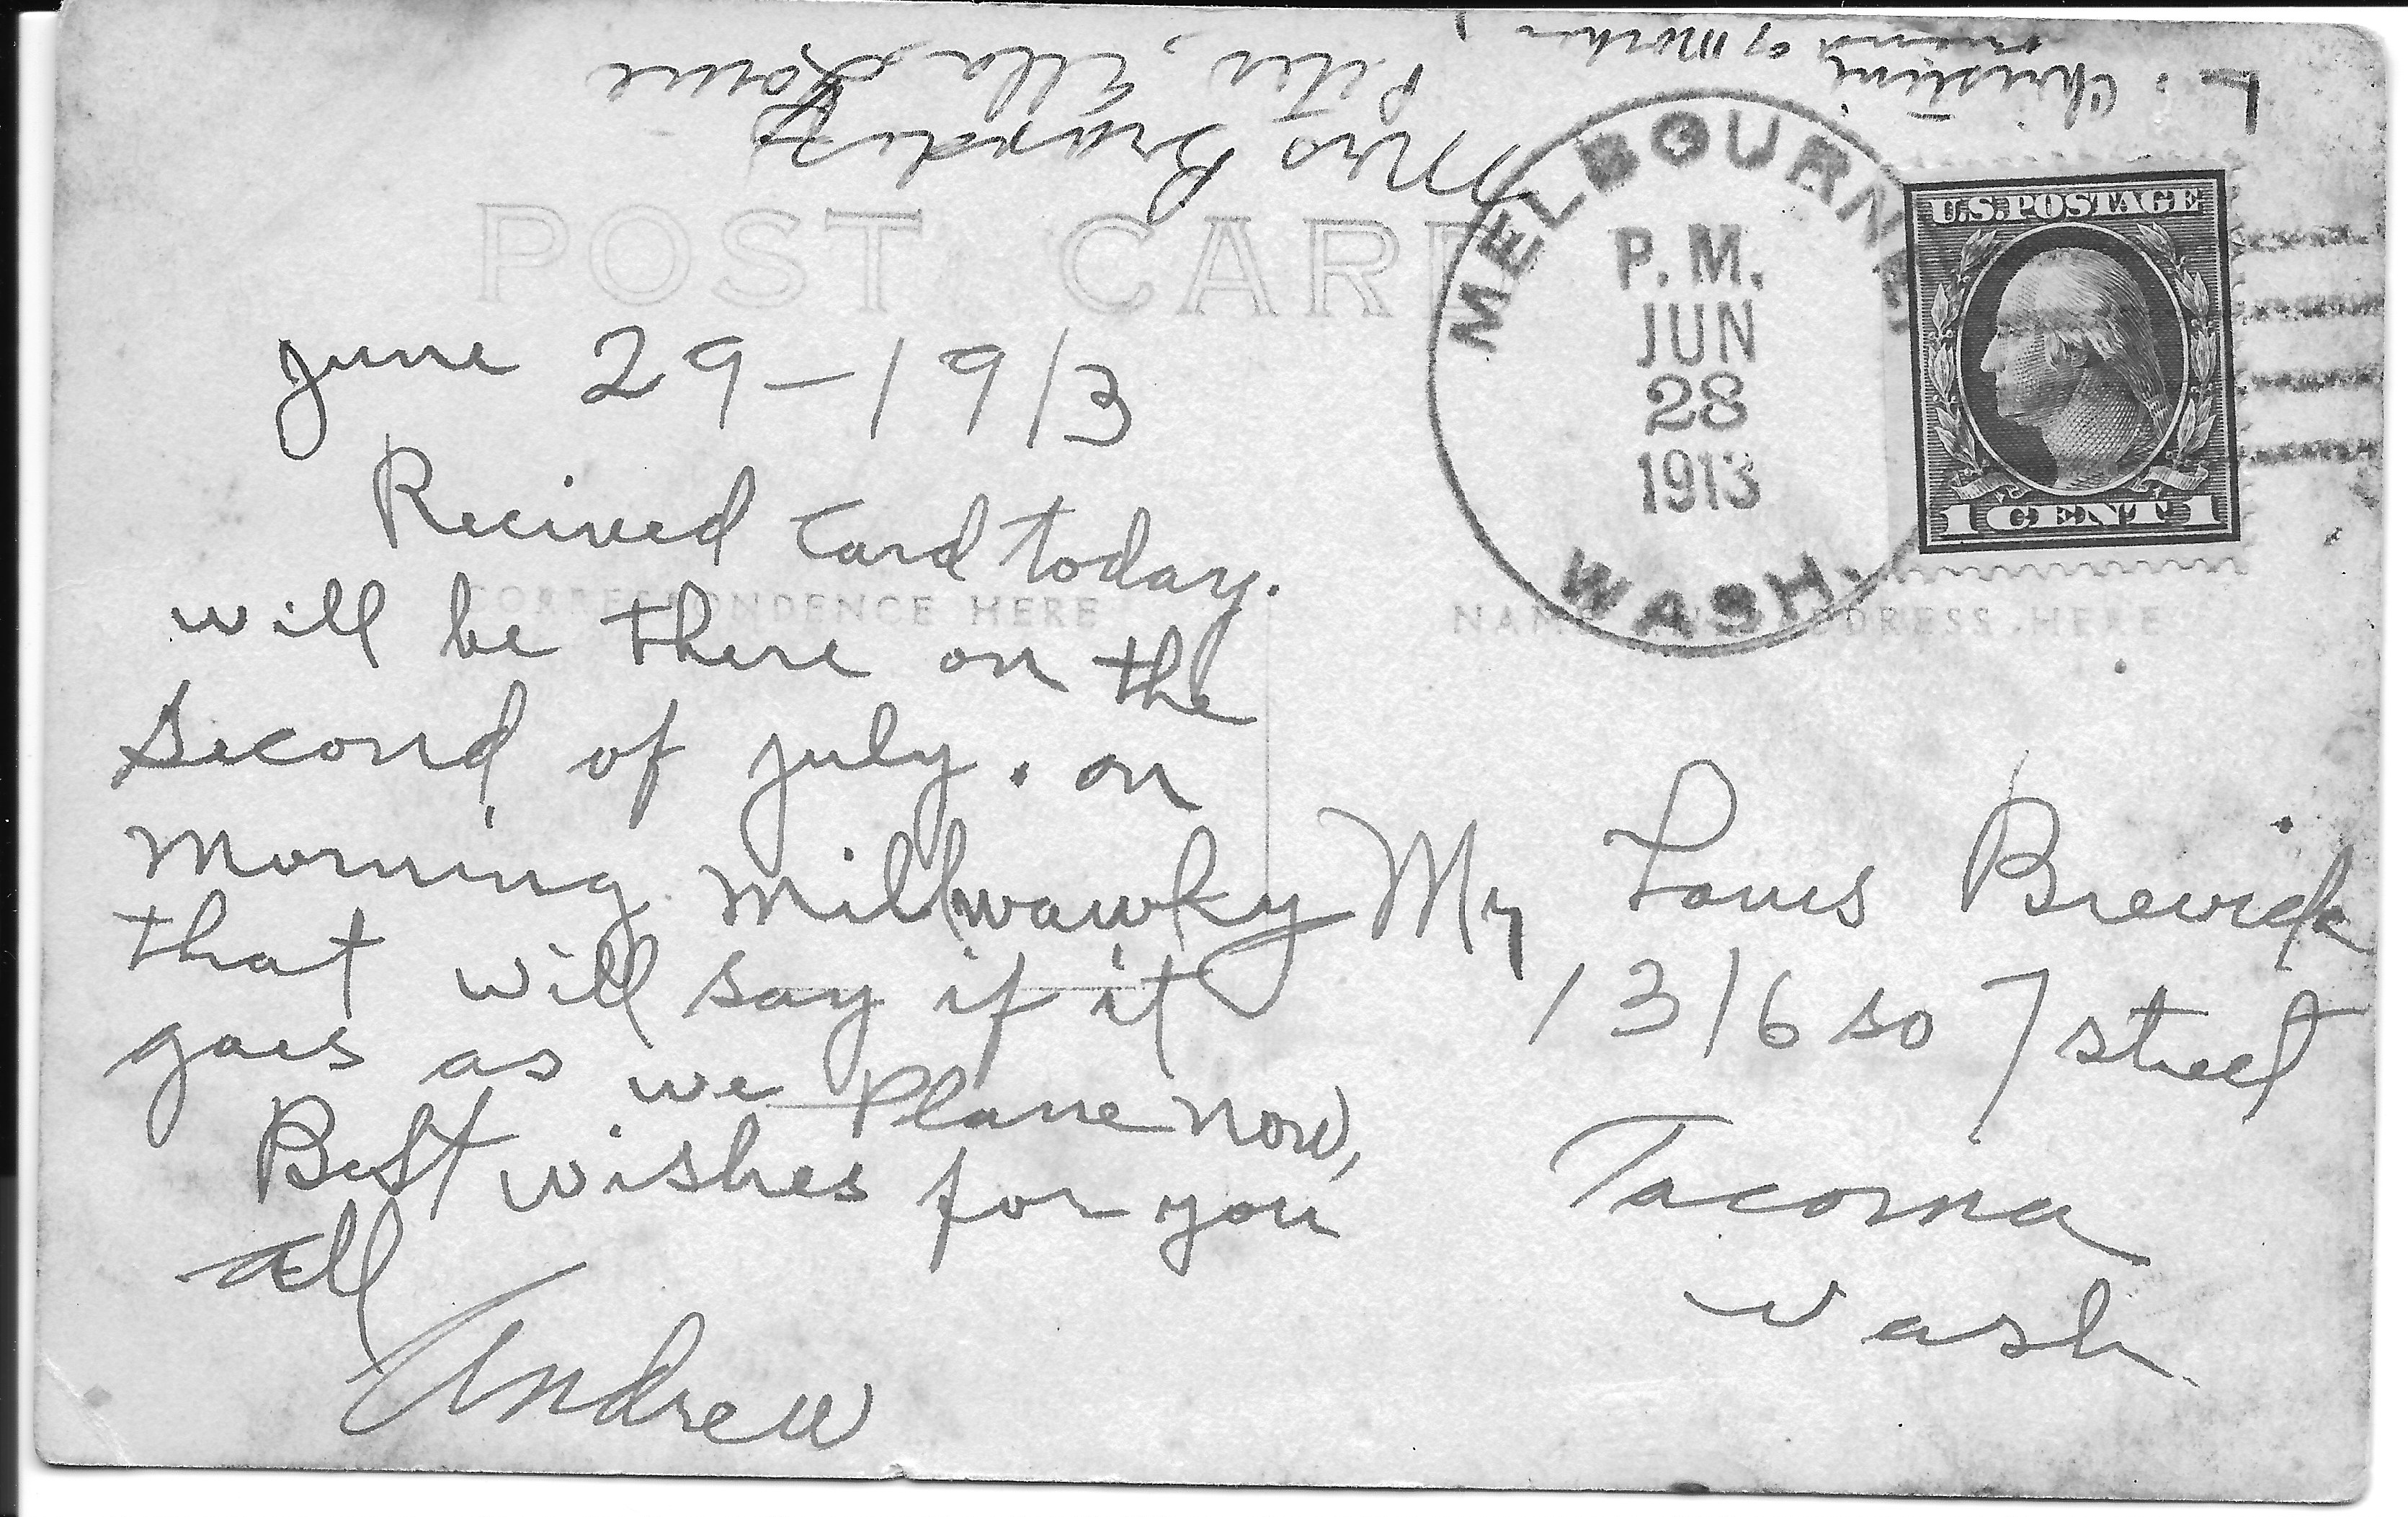 L. Christine
friend of mother,
Peter, Ella, Louie
Mrs Brandt
POST CARD
MELBOURNE
P.M.
JUN
28
1913
WASH.
U.S. POSTAGE
1 CENT 1
june 29-1913
Recived Card today.
CORRESPONDENCE HERE
NAME AND ADDRESS HERE
will be there on the
second of july. on
morning millwawky
that will say if it
goes as we Plane now,
Best wishes for you
all
Andrew
Mr Louis Brevick
1316 so 7 street
Tacoma
Wash